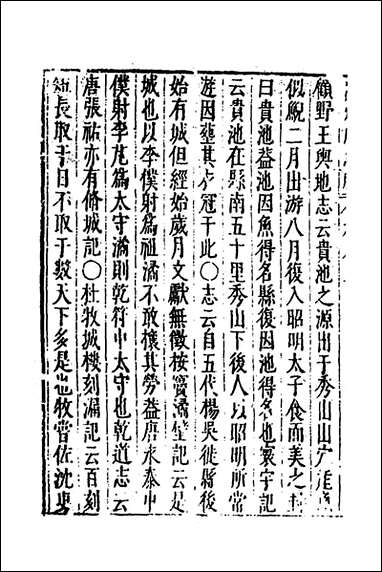 顧野王輿地志云貴池之源出于秀山山穴産魚
似鯢二月出游八月復入昭明太子食而美之封
曰貴池益池因魚得名縣復因池得名也寰宇記
云貴池在縣南五十里秀山下後人以昭明所常
遊因塟其衣冠于此〇志云自五代楊吳徙縣後
始有城但經始歲月文獻無徵按竇潏壁記云是
城也以李僕射爲祖潏不敢攘其勞益唐永泰中
僕射李凡爲太守潏則乾符中太守也乾道志云
唐張祐亦有脩城記〇杜牧城樓刻漏記云百刻
短長取于日不取于數天下多是也牧嘗佐沈吏